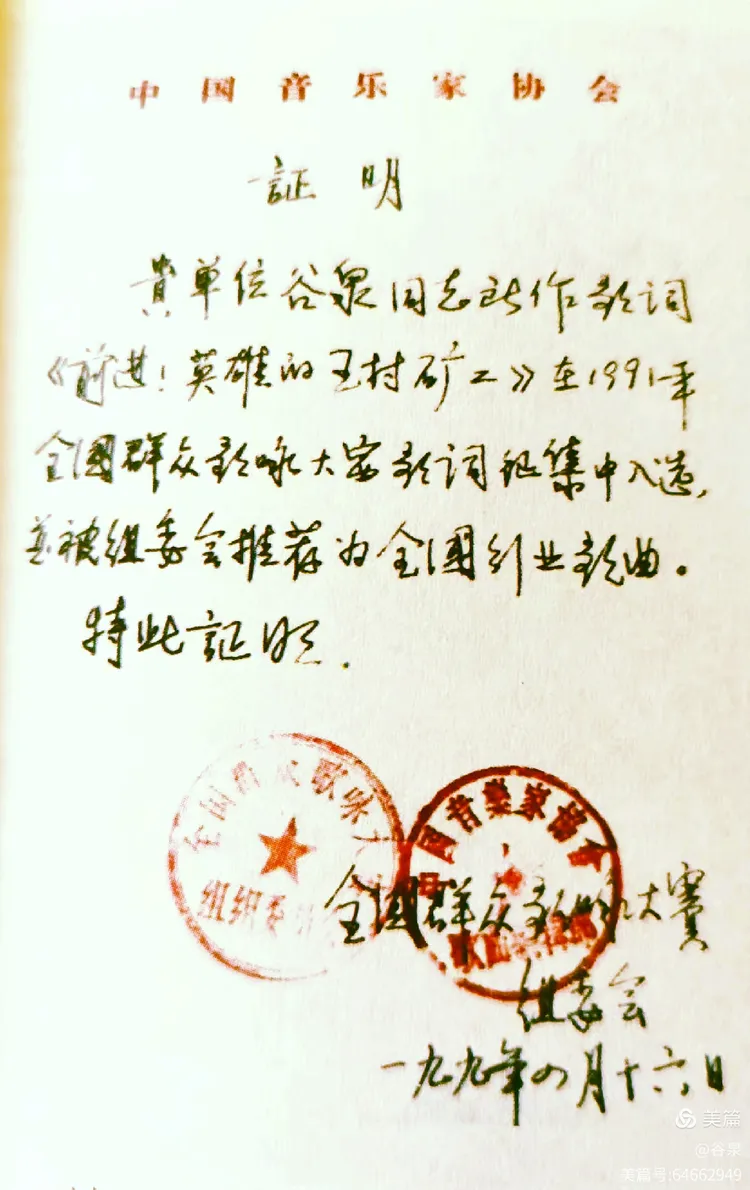 中国音乐家协会
証明
貴单位谷泉同志所作歌词
《前进！英雄的王村矿工》在1991年
全國群众歌咏大赛歌词征集中入选，
并被组委会推荐为全國创业歌曲。
特此証明.
全国群众歌咏大
组织委
音樂家協会
全國群众歌咏大賽
组委会
一九九年四月十六日
美篇
@谷泉
美篇号:64662949